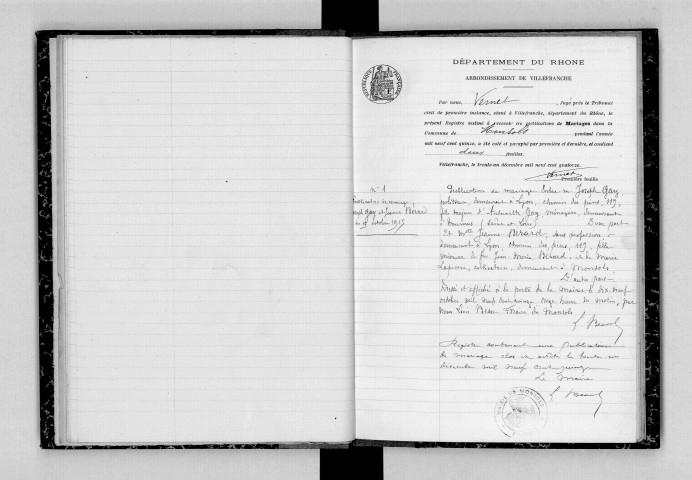 DÉPARTEMENT DU RHONE
ARRONDISSEMENT DE VILLEFRANCHE
Par nous, Vernet, Jugé près le Tribunal
civil de première instance, séant à Villefranche, département du Rhône, le
présent Registre destiné à recevoir les publications de Mariages dans la
Commune de Monsols pendant l'année
mil neuf cent quinze, a été coté et paraphé par première et dernière, et contient
deux feuilles.
Villefranche, le trente-un décembre mil neuf cent quatorze.
Vernet
Première feuille
N° 1
Publication de mariage
Joseph Gay et Jeanne Berard
octobre 1915
Publication de mariage Entre M. Joseph Gay,
domicilié à Lyon, chemin des pins, 119,
fils majeur d'Antoinette Gay, ménagère, demeurant
à Tournus (Saône et Loire) D'une part
Et Mlle Jeanne Berard, sans profession,
demeurant à Lyon, chemin des pins, 119, fille
mineure de feu Jean Marie Berard, et de Marie
demeurant à Monsols
D'autre part
Dressé et affiché à la porte de la mairie le dix neuf
octobre mil neuf cent quinze onze heures du matin, par
nous Maire de Monsols
Registre contenant une publication
de mariage clos et arrêté le trente un
décembre mil neuf cent quinze
Le Maire